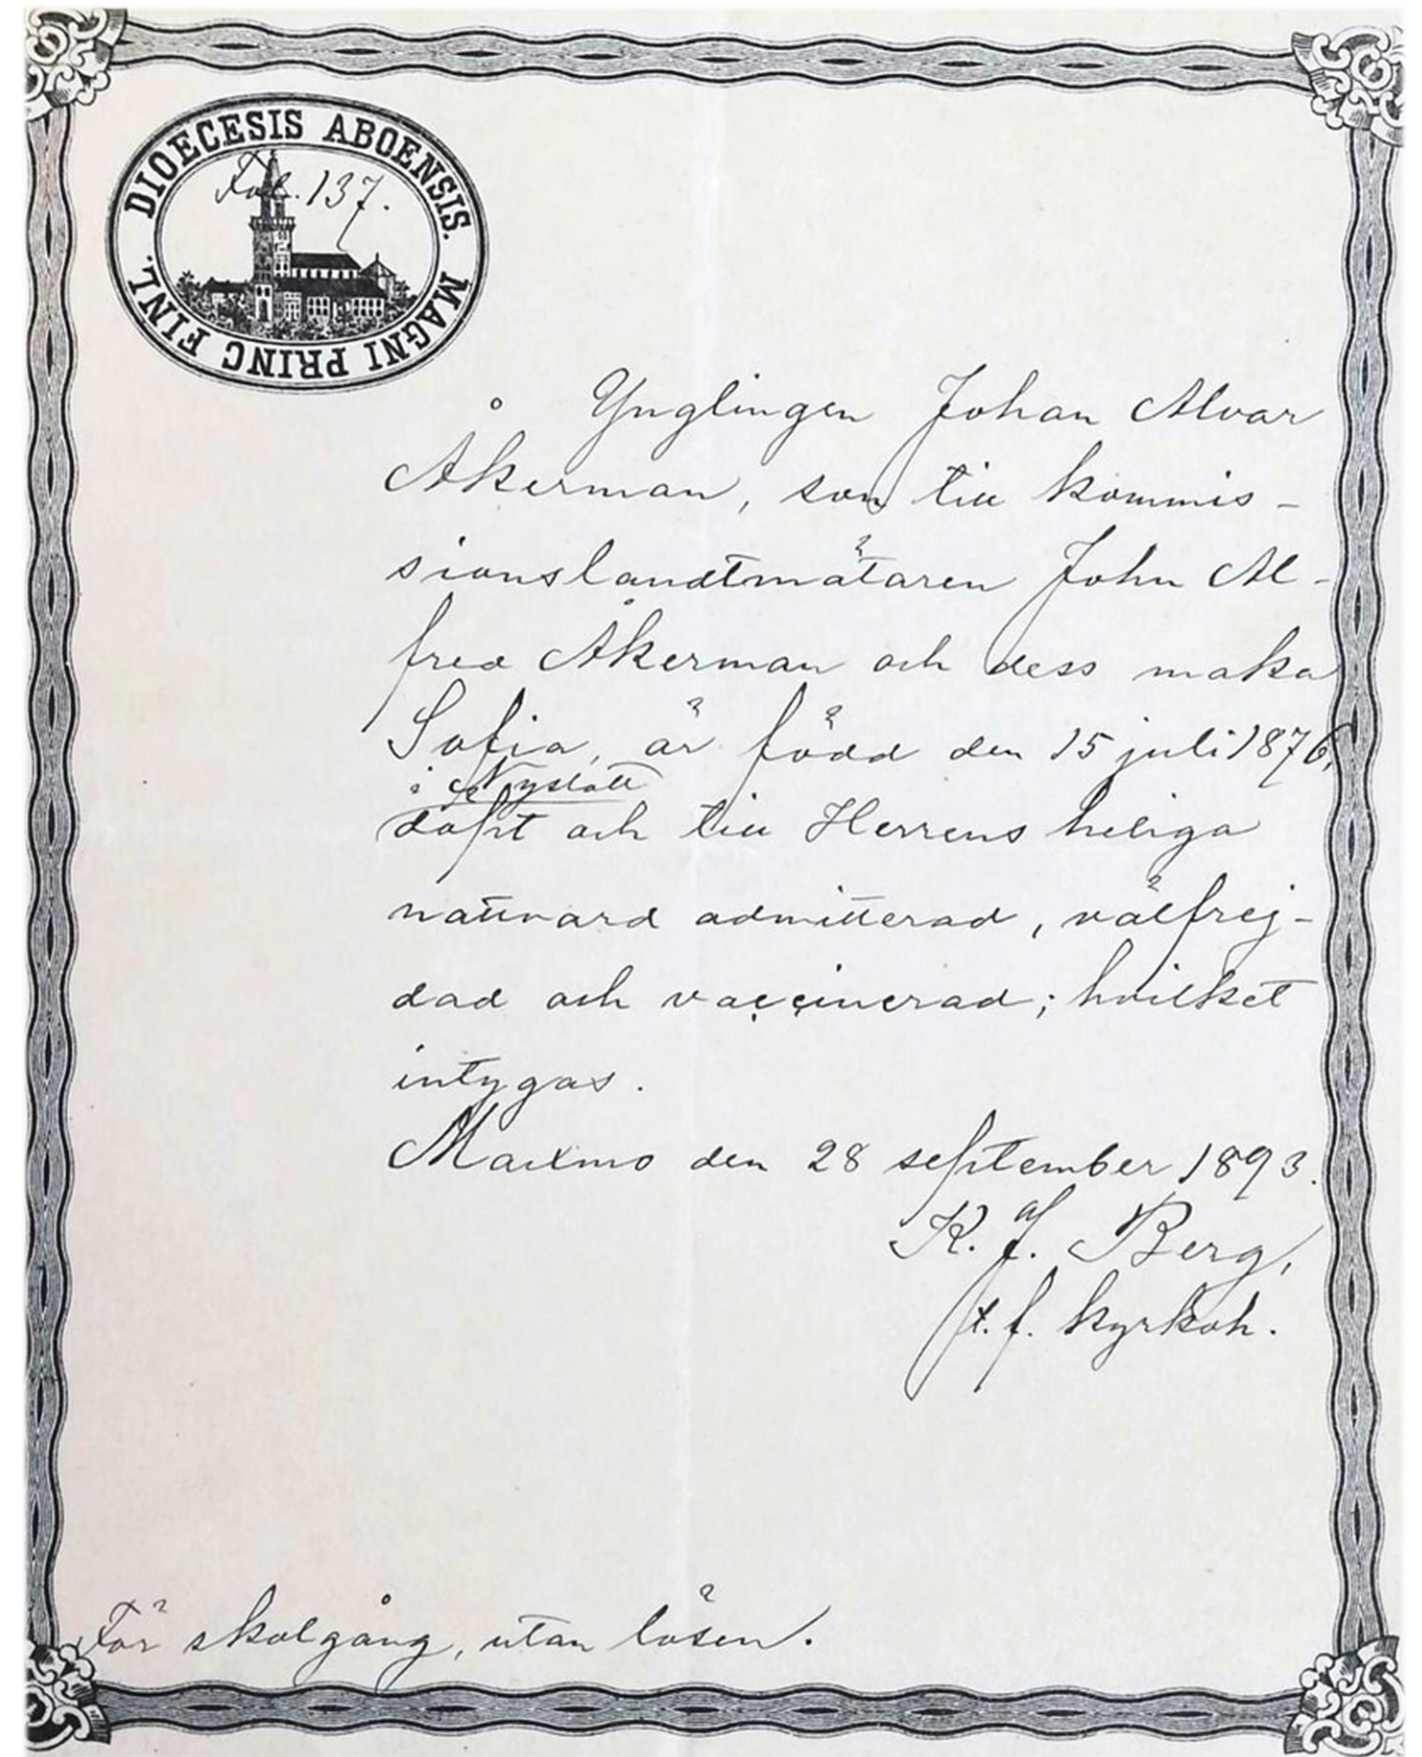 DIOECESIS ABOENSIS. MAGNI PRINC FINL.
Fol. 137.
Ynglingen Johan Alvar
Åkerman, son till kommis-
sionslandtmätaren John Al-
fred Åkerman och dess maka
Sofia, är född den 15 juli 1876,
i Nystad
döpt och till Herrens heliga
nattvard admitterad, välfrej-
dad och vaccinerad; hvilket
intygas.
Maxmo den 28 september 1893.
K. J. af Berg,
t. f. kyrkoh.
För skolgång, utan lösen.